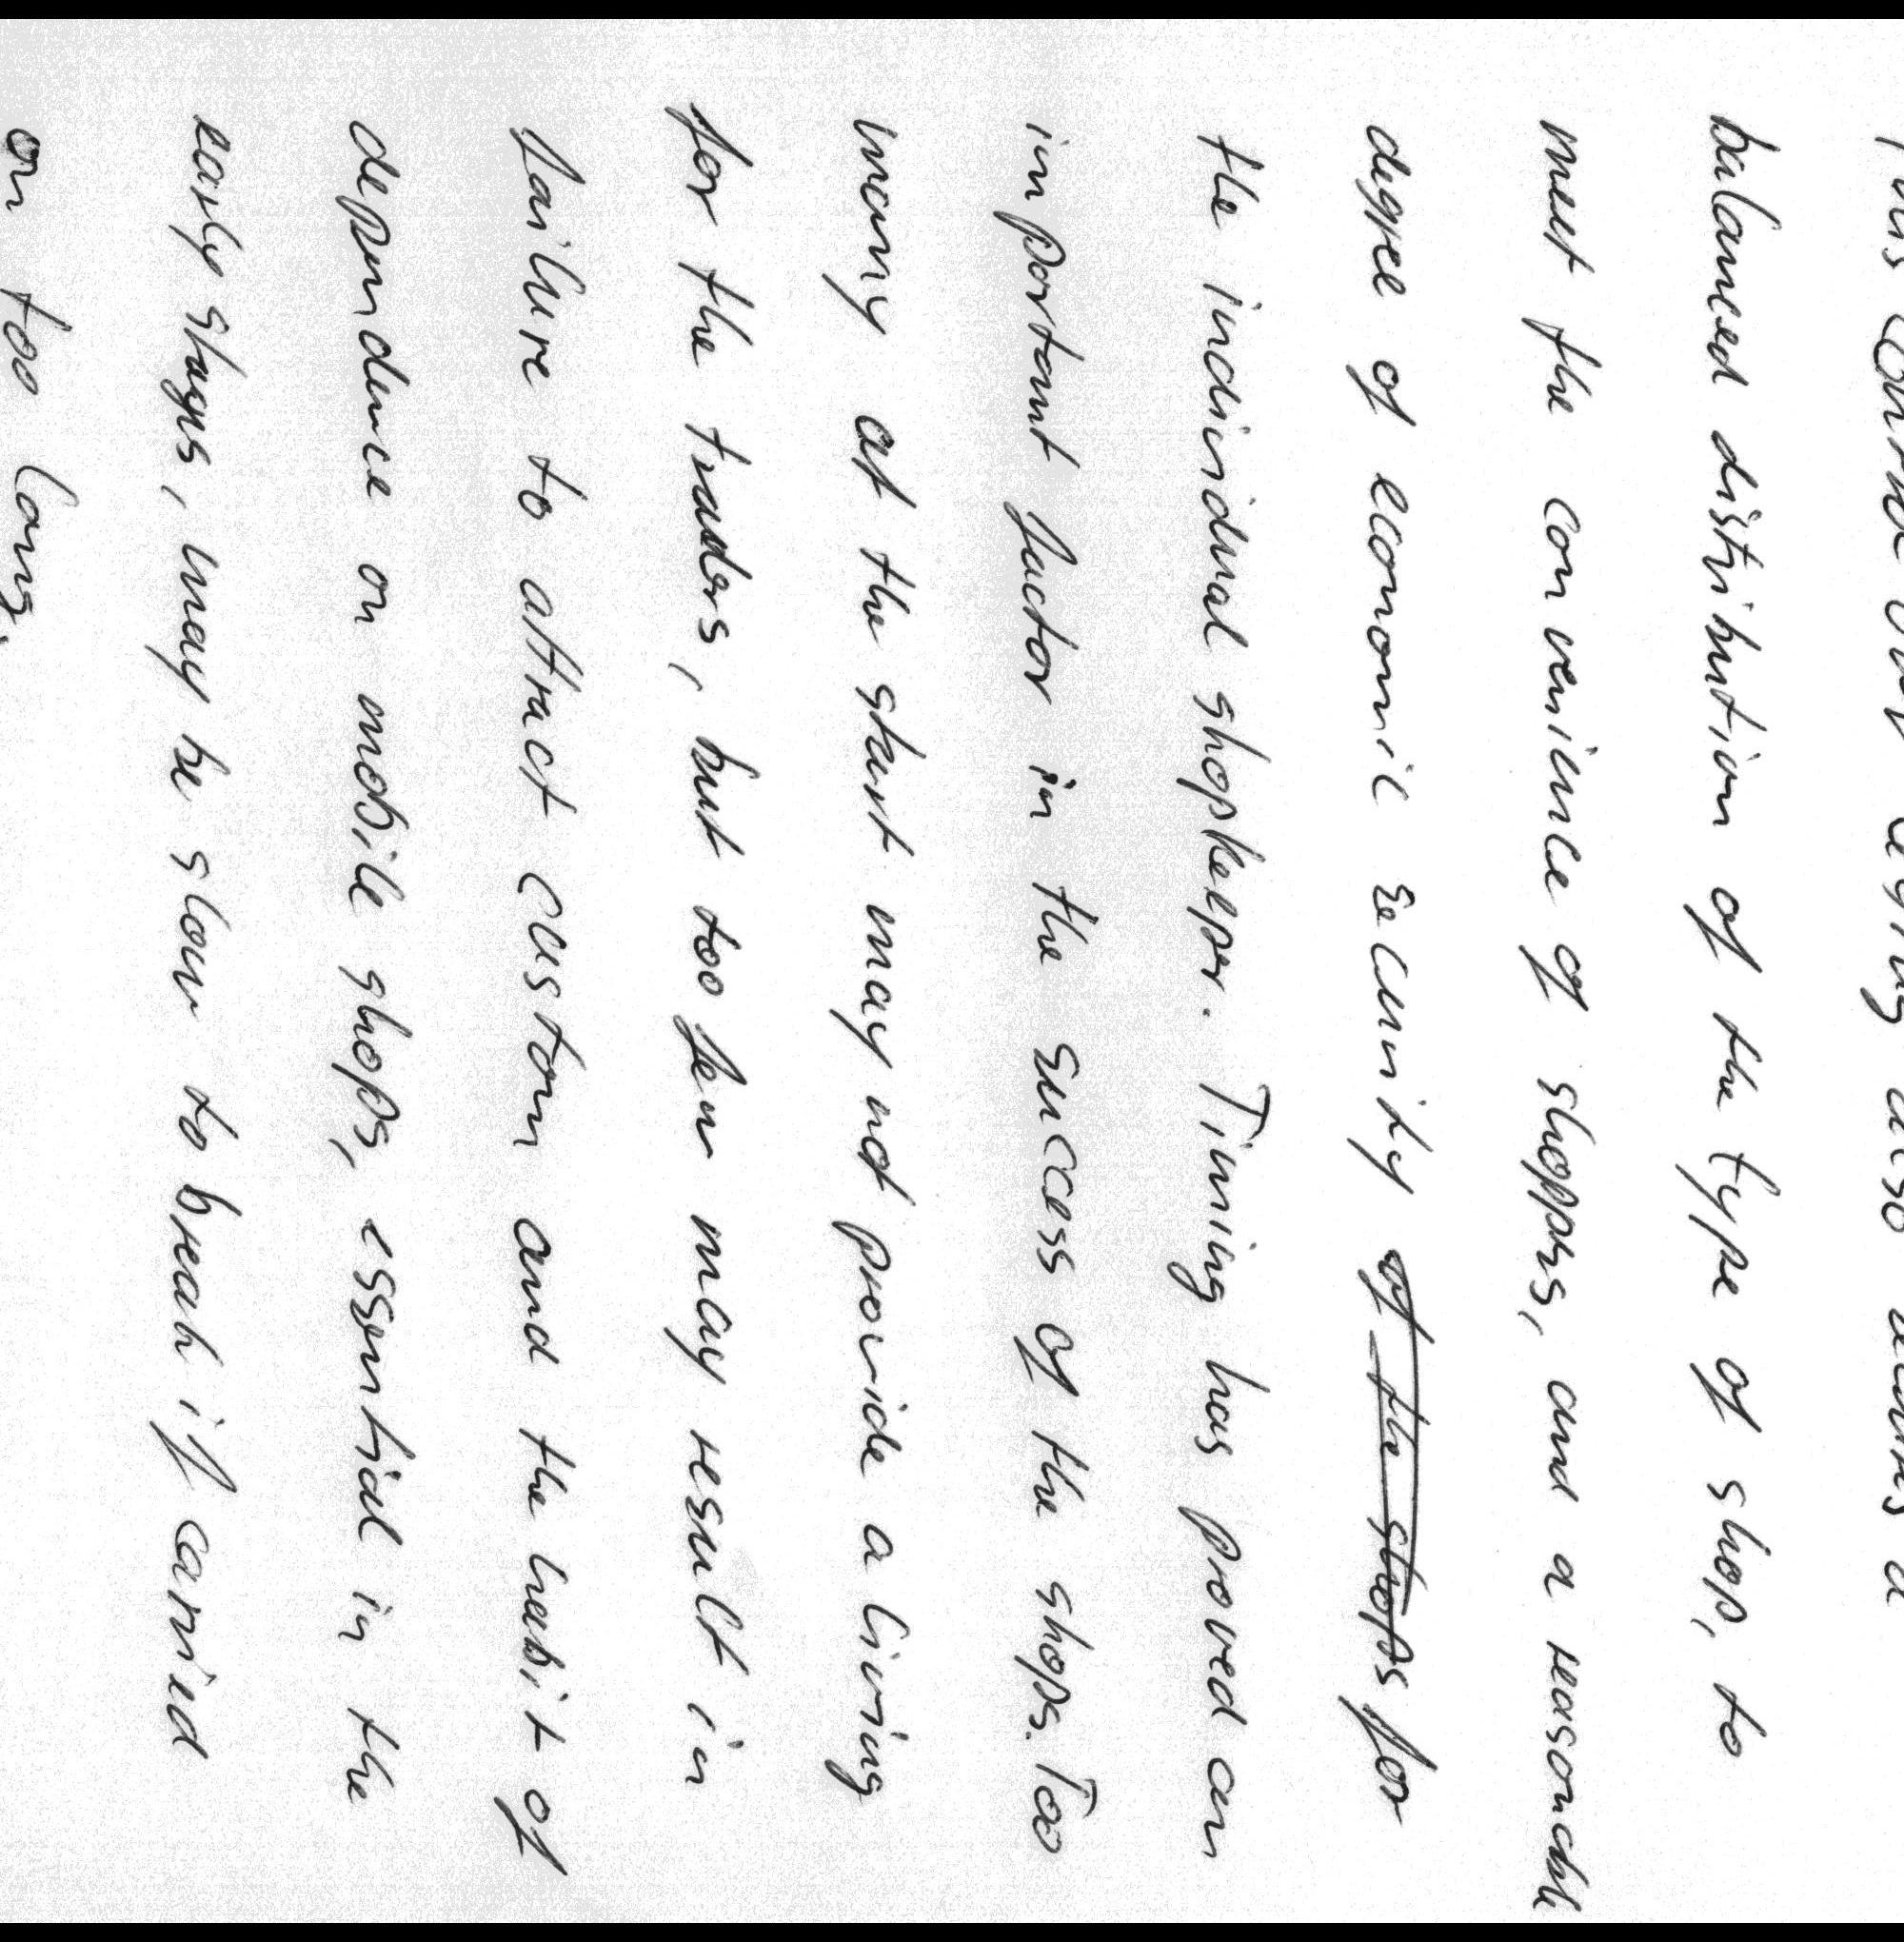 This Council over letting also means a
balanced distribution of the type of shop, to
meet the convenience of shoppers, and a reasonable
degree of economic security of the shops for
the individual shopkeeper. Timing has proved an
important factor in the success of the shops. Too
many at the start may not provide a living
for the traders, but too few may result in
failure to attract custom and the habit of
dependence on mobile shops, essential in the
early stages, may be slow to break if carried
on too long.